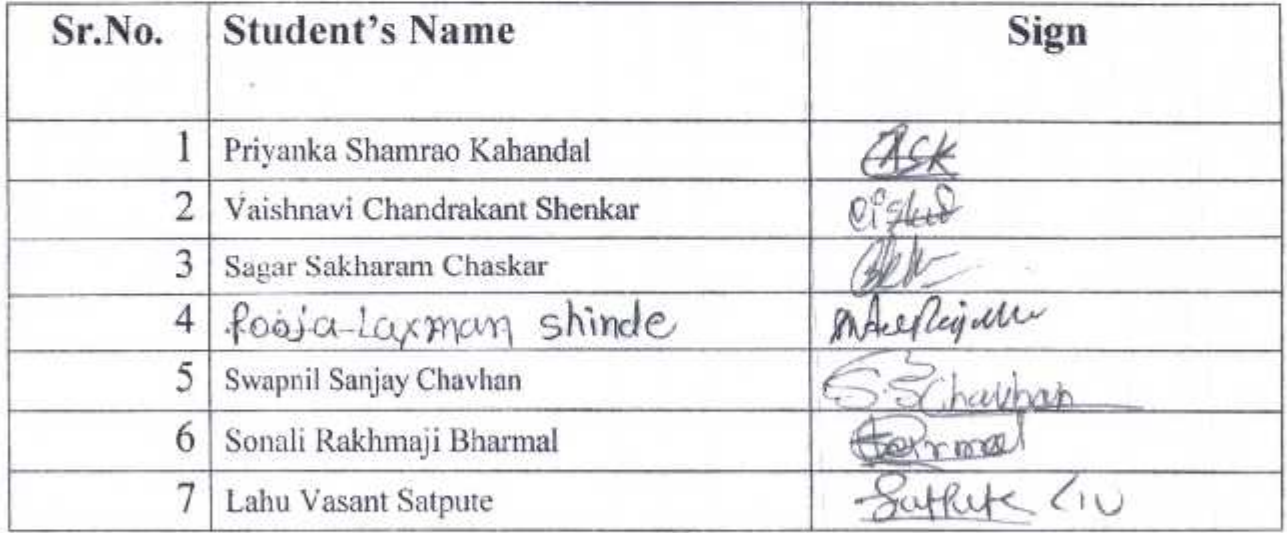 Sr.No. Student's Name Sign
1 Priyanka Shamrao Kahandal
2 Vaishnavi Chandrakant Shenkar
3 Sagar Sakharam Chaskar
4 Pooja Laxman shinde
5 Swapnil Sanjay Chavhan S.S Chavhan
6 Sonali Rakhmaji Bharmal
7 Lahu Vasant Satpute Satpute